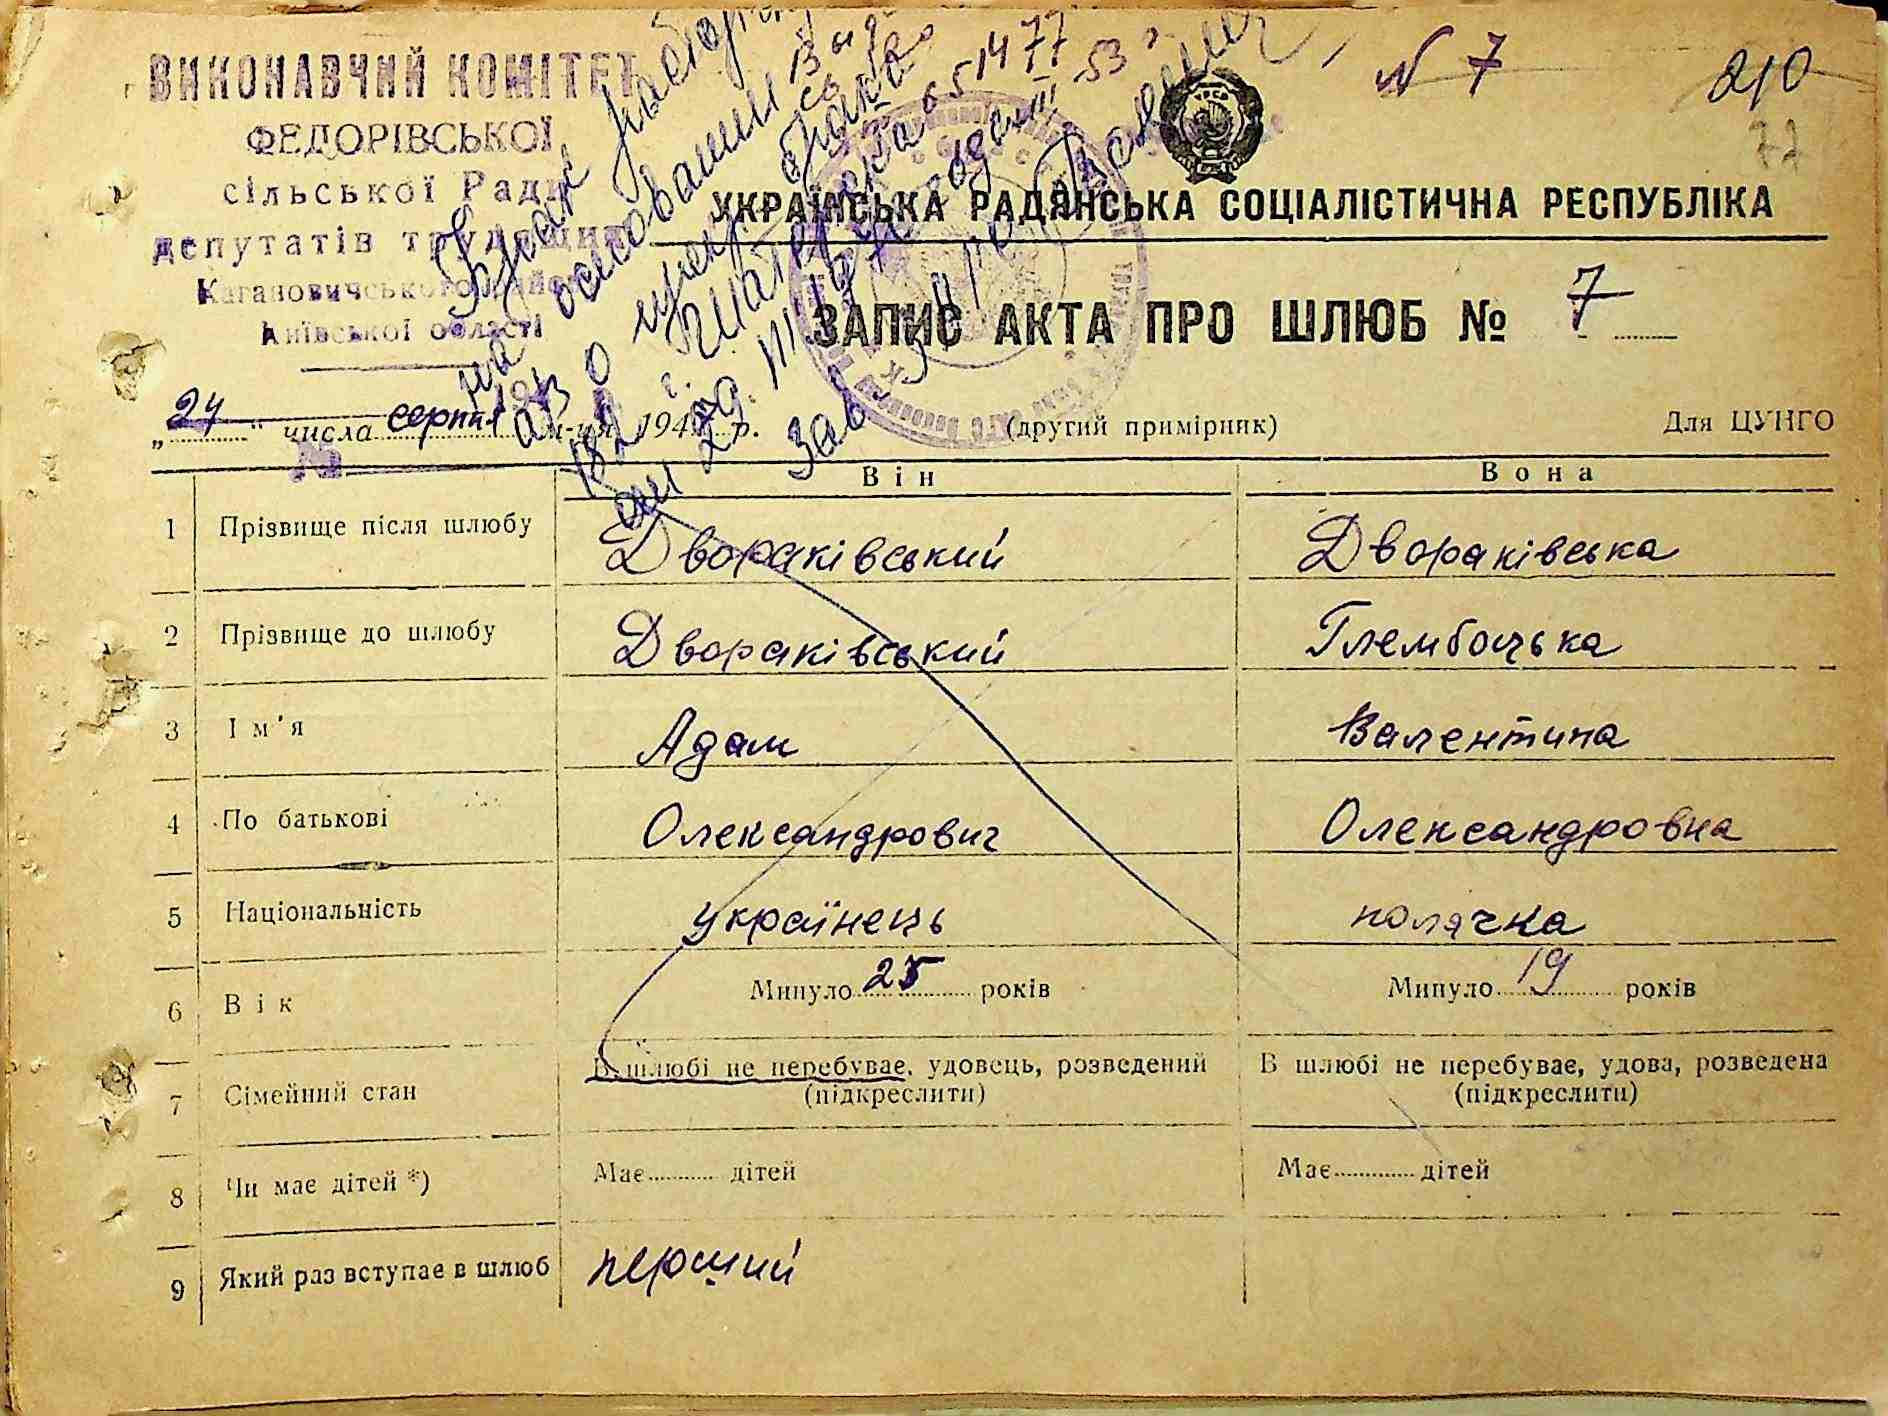 № 7
210
72
ВИКОНАВЧИЙ КОМІТЕТ
ФЕДОРІВСЬКОЇ
сільської Ради
депутатів трудящих
Кагановичського
Київської області
УРСР
УКРАЇНСЬКА РАДЯНСЬКА СОЦІАЛІСТИЧНА РЕСПУБЛІКА
ЗАПИС АКТА ПРО ШЛЮБ № 7
„24“ числа серпня м-ця 194 р.
(другий примірник)
Для ЦУНГО
№
Він
Вона
1 Прізвище після шлюбу Двораківський Двораківська
2 Прізвище до шлюбу Двораківський Глембоцька
3 Ім'я Адам Валентина
4 По батькові Олександрович Олександровна
5 Національність українець полячка
6 Вік Минуло 25 років Минуло 19 років
7 Сімейний стан В шлюбі не перебуває, удовець, розведений В шлюбі не перебуває, удова, розведена
(підкреслити) (підкреслити)
8 Чи має дітей *) Має дітей Має дітей
9 Який раз вступає в шлюб перший